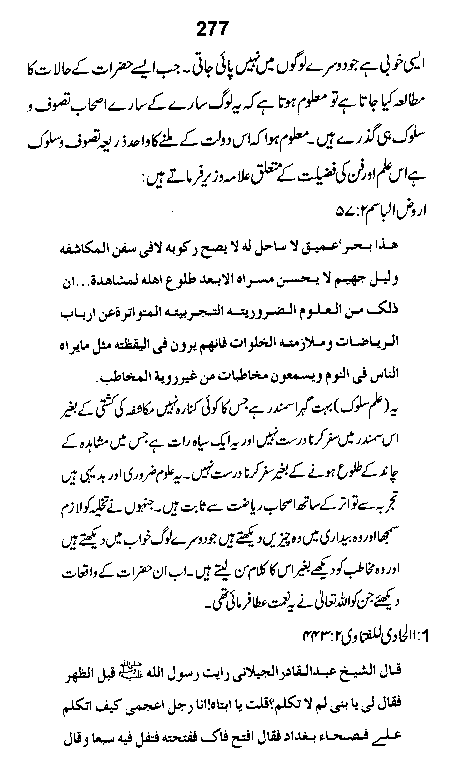 277
ایسی خوبی ہے جو دوسرے لوگوں میں نہیں پائی جاتی ۔ جب ایسے حضرات کے حالات کا
مطالعہ کیا جاتا ہے تو معلوم ہوتا ہے کہ یہ لوگ سارے کے سارے اصحاب تصوف و
سلوک ہی گذرے ہیں ۔ معلوم ہوا کہ اس دولت کے ملنے کا واحد ذریعہ تصوف و سلوک
ہے اس علم اور فن کی فضیلت کے متعلق علامہ وزیر فرماتے ہیں:
اروض الباسم ۲:۵۷
هذا بحر عميق لا ساحل له لا يصح ركوبه لافى سفن المكاشفه
وليل جهيم لا يحسن مسراه الابعد طلوع اهله لمشاهدة...ان
ذلك من العلوم الضروريته التجربيته المتواترة عن ارباب
الرياضات وملازمته الخلوات فانهم يرون فى اليقظته مثل مايراه
الناس فى النوم ويسمعون مخاطبات من غيرروية المخاطب.
یہ (علم سلوک) بہت گہرا سمندر ہے جس کا کوئی کنارہ نہیں مکاشفہ کی کشتی کے بغیر
اس سمندر میں سفر کرنا درست نہیں اور یہ ایک سیاہ رات ہے جس میں مشاہدہ کے
چاند کے طلوع ہونے کے بغیر سفر کرنا درست نہیں ۔ یہ علوم ضروری اور بدیہی ہیں
تجربہ سے تواتر کے ساتھ اصحاب ریاضت سے ثابت ہیں ۔ جنہوں نے تخلیہ کو لازم
سمجھا اور وہ بیداری میں وہ چیزیں دیکھتے ہیں جو دوسرے لوگ خواب میں دیکھتے ہیں
اور وہ مخاطب کو دیکھے بغیر اس کا کلام سن لیتے ہیں ۔ اب ان حضرات کے واقعات
دیکھئے جن کو اللہ تعالیٰ نے یہ نعمت عطا فرمائی تھی ۔
1:الحاوی للفتاوی ۲:۴۴۳
قال الشيخ عبدالقادر الجيلانى رايت رسول الله ﷺ قبل الظهر
فقال لى يا بنى لم لا تكلم؟قلت يا ابتاه!انا رجل اعجمى كيف اتكلم
على فصحاء بغداد فقال افتح فاك ففتحته فتفل فيه سبعا وقال